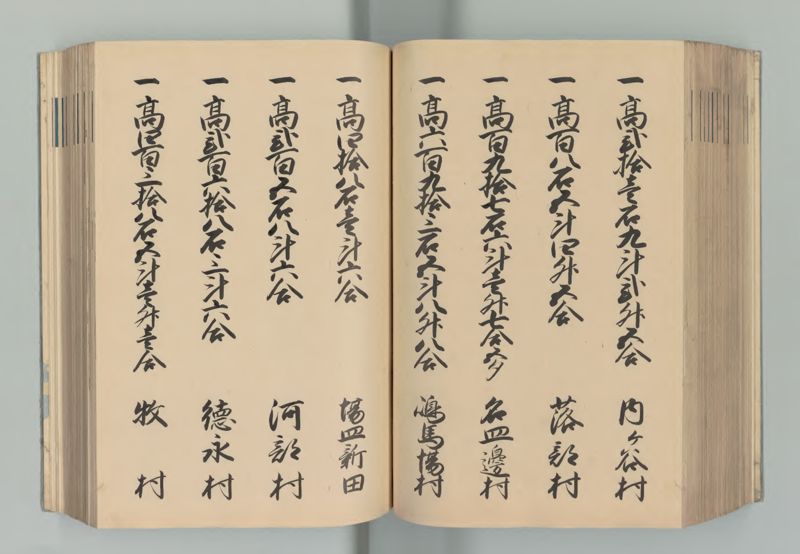 一高弐拾壱石九斗弐升五合 内ヶ谷村
一高百八石五斗四升五合 落部村
一高百九拾七石六斗壱升七合五夕 名皿邊村
一高六百九拾三石五斗八升八合 馬場村
一高四拾八石壱斗六合 場皿新田
一高弐百五石八斗六合 河部村
一高弐百六拾八石三斗六合 徳永村
一高四百三拾八石五斗壱升壱合 牧村